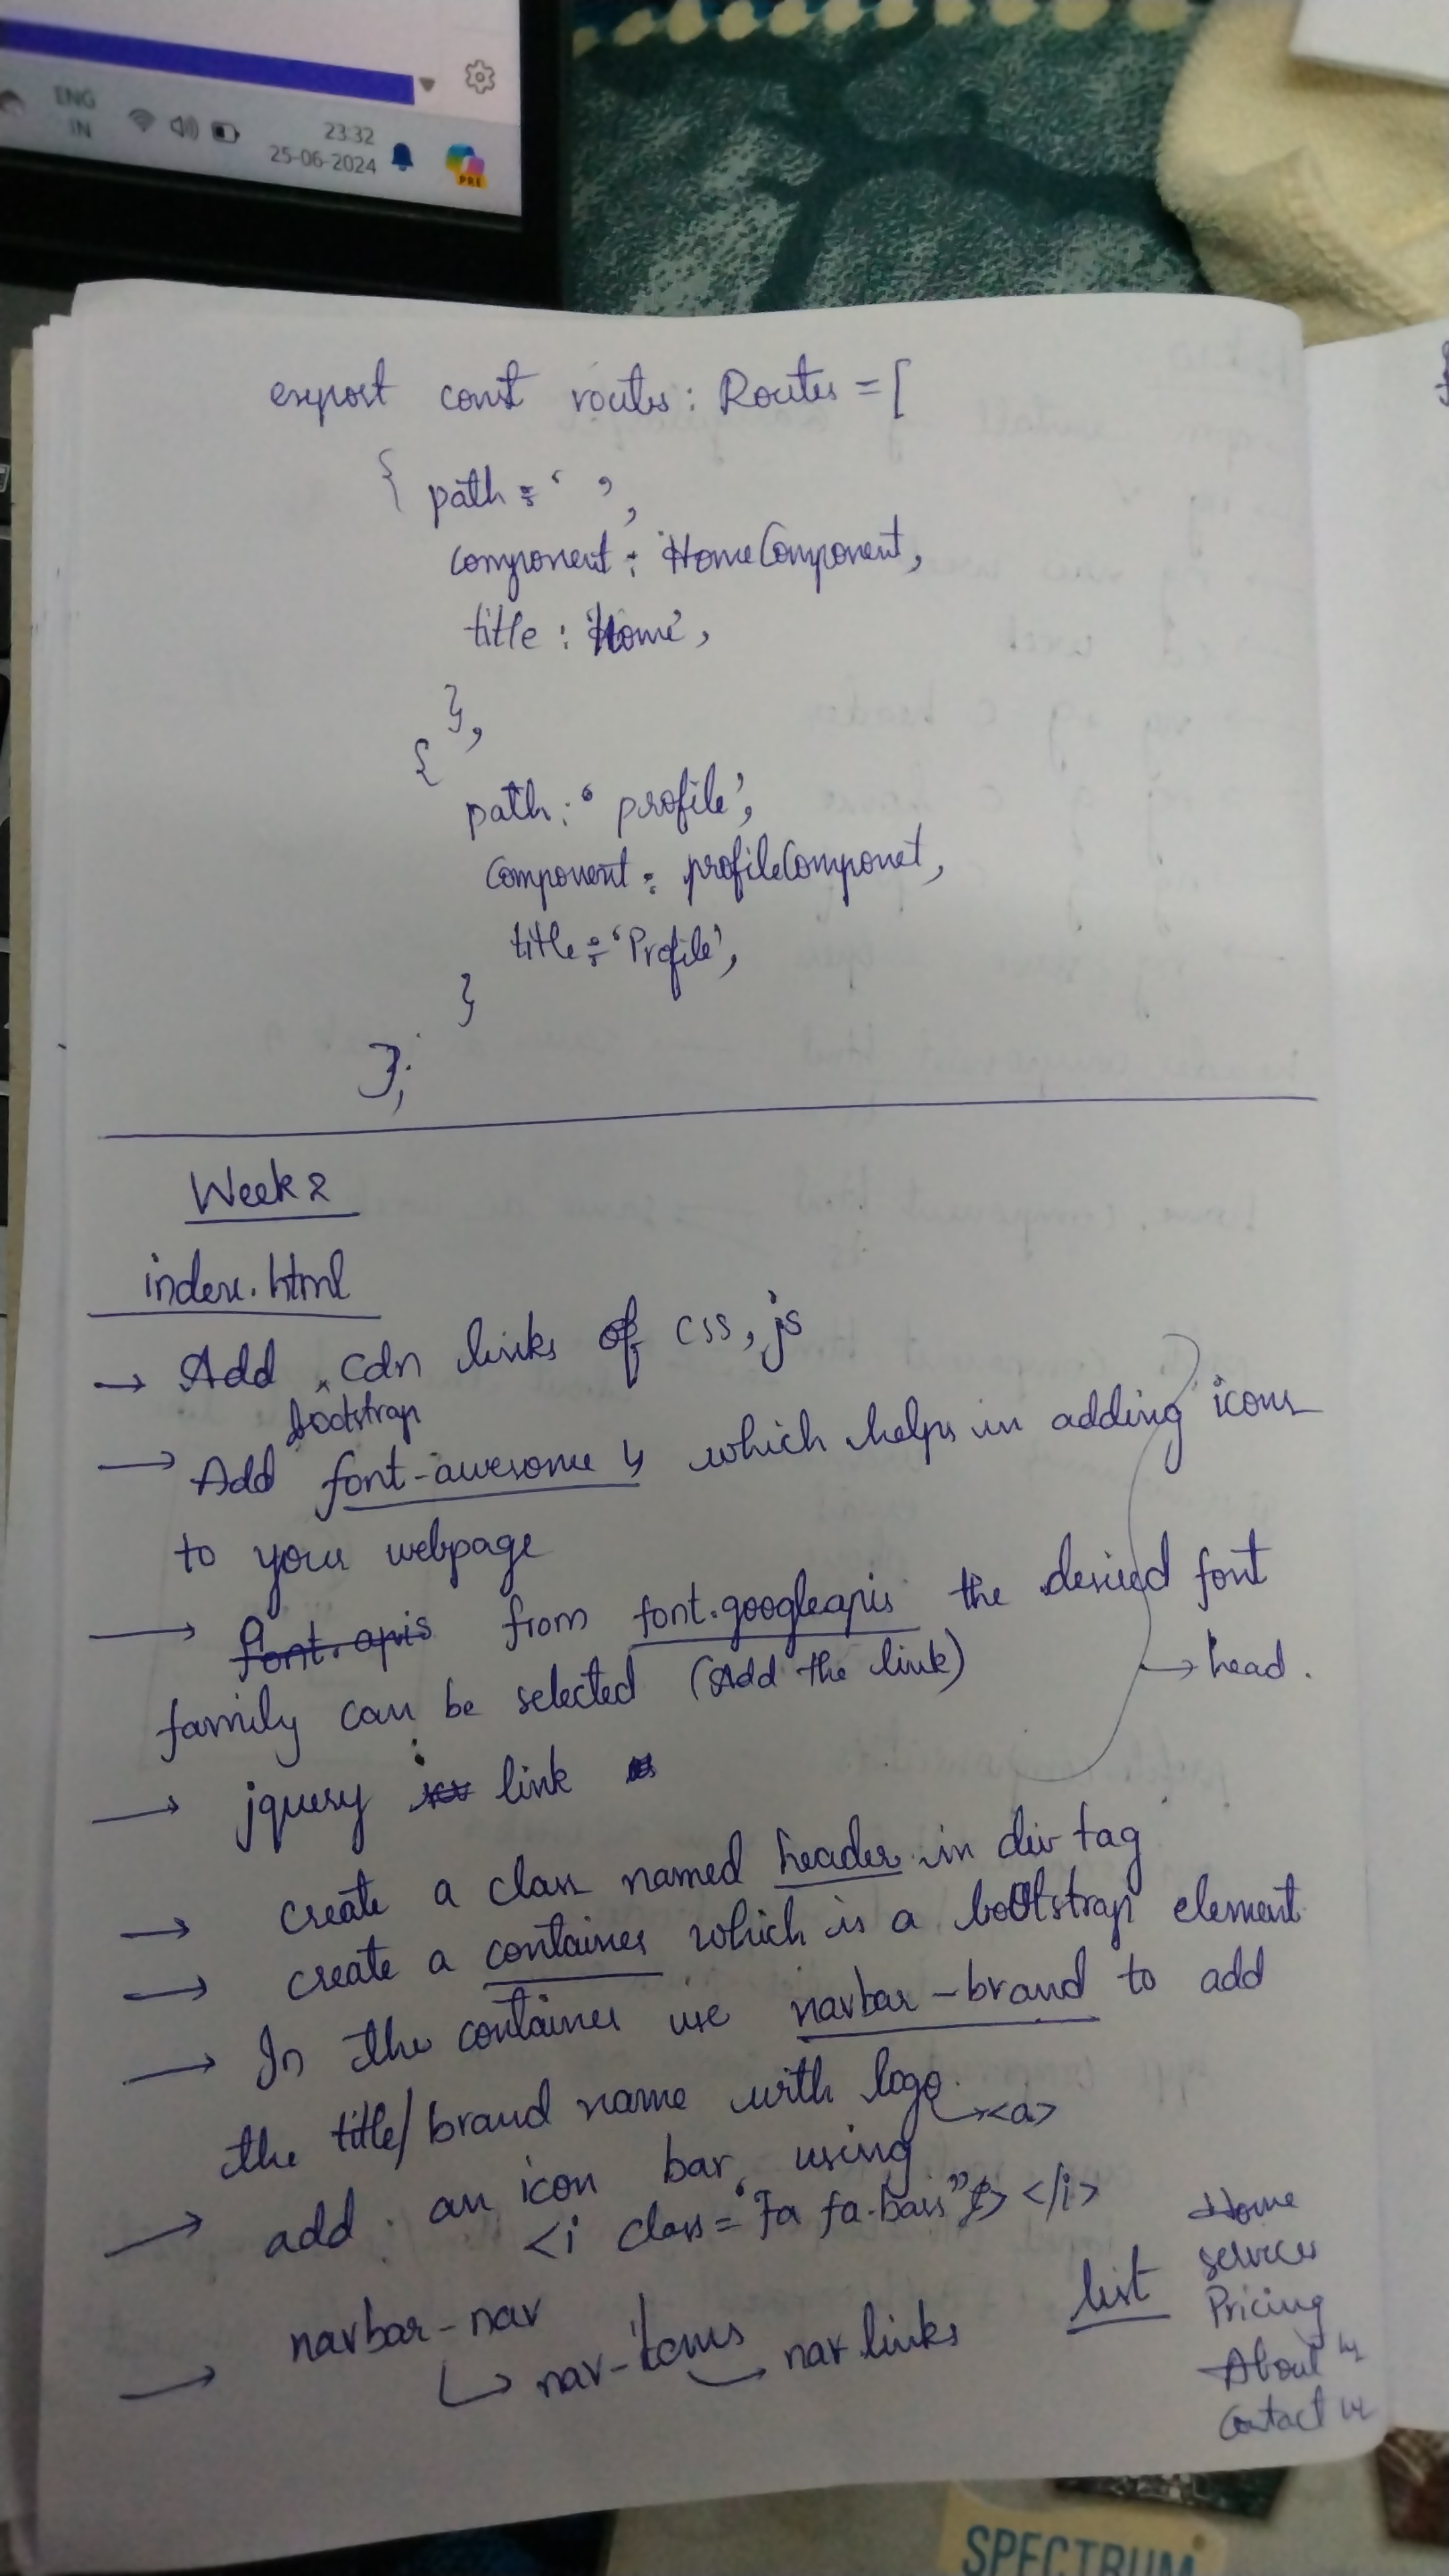 ENG
IN
23:32
25-06-2024
PRE
export const routes: Routes = [
{ path : ' ',
component : HomeComponent,
title : 'Home',
},
{
path : 'profile',
Component : profileComponet,
title : 'Profile',
}
];
Week 2
index.html
→ Add cdn links of css, js
bootstrap
→ Add font-awesome which helps in adding icons
to your webpage
→ font.apis from font.googleapis the desired font
family can be selected (Add the link)
→ head.
→ jquery link
→ create a class named header in div tag
→ create a container which is a bootstrap element
→ In the container use navbar-brand to add
the title/brand name with logo.
→ <a>
→ add an icon bar using
<i class="fa fa-bars"></i>
→ navbar-nav
↳ nav-items → nav links
list
Home
services
Pricing
About us
Contact us
SPECTRUM